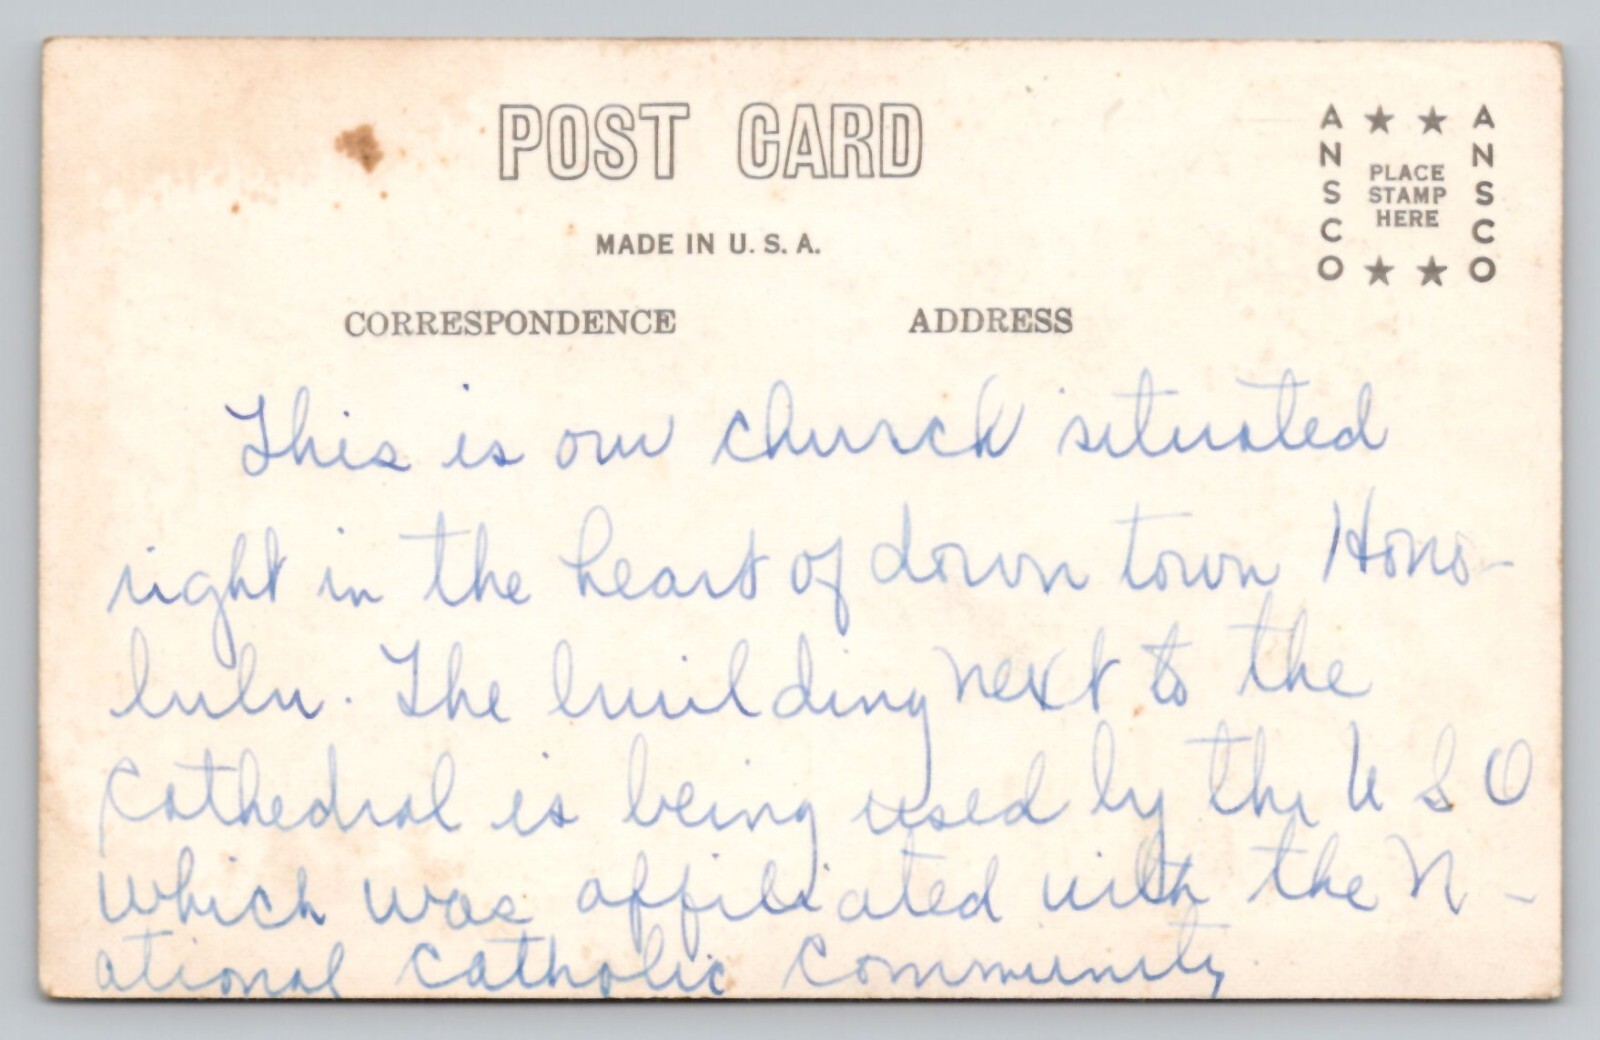 POST CARD
MADE IN U.S.A.
CORRESPONDENCE
ADDRESS
ANSCO
PLACE
STAMP
HERE
ANSCO
This is our church situated
right in the heart of down town Hono-
lulu. The building next to the
Cathedral is being used by the U S O
which was affiliated with the N-
ational Catholic Community.